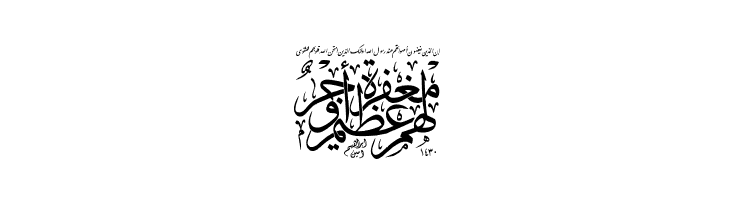 إن الذين يغضون أصواتهم عند رسول الله أولئك الذين امتحن الله قلوبهم للتقوى
لهم مغفرة وأجر عظيم
ابراهيم
امين
١٤٣٠